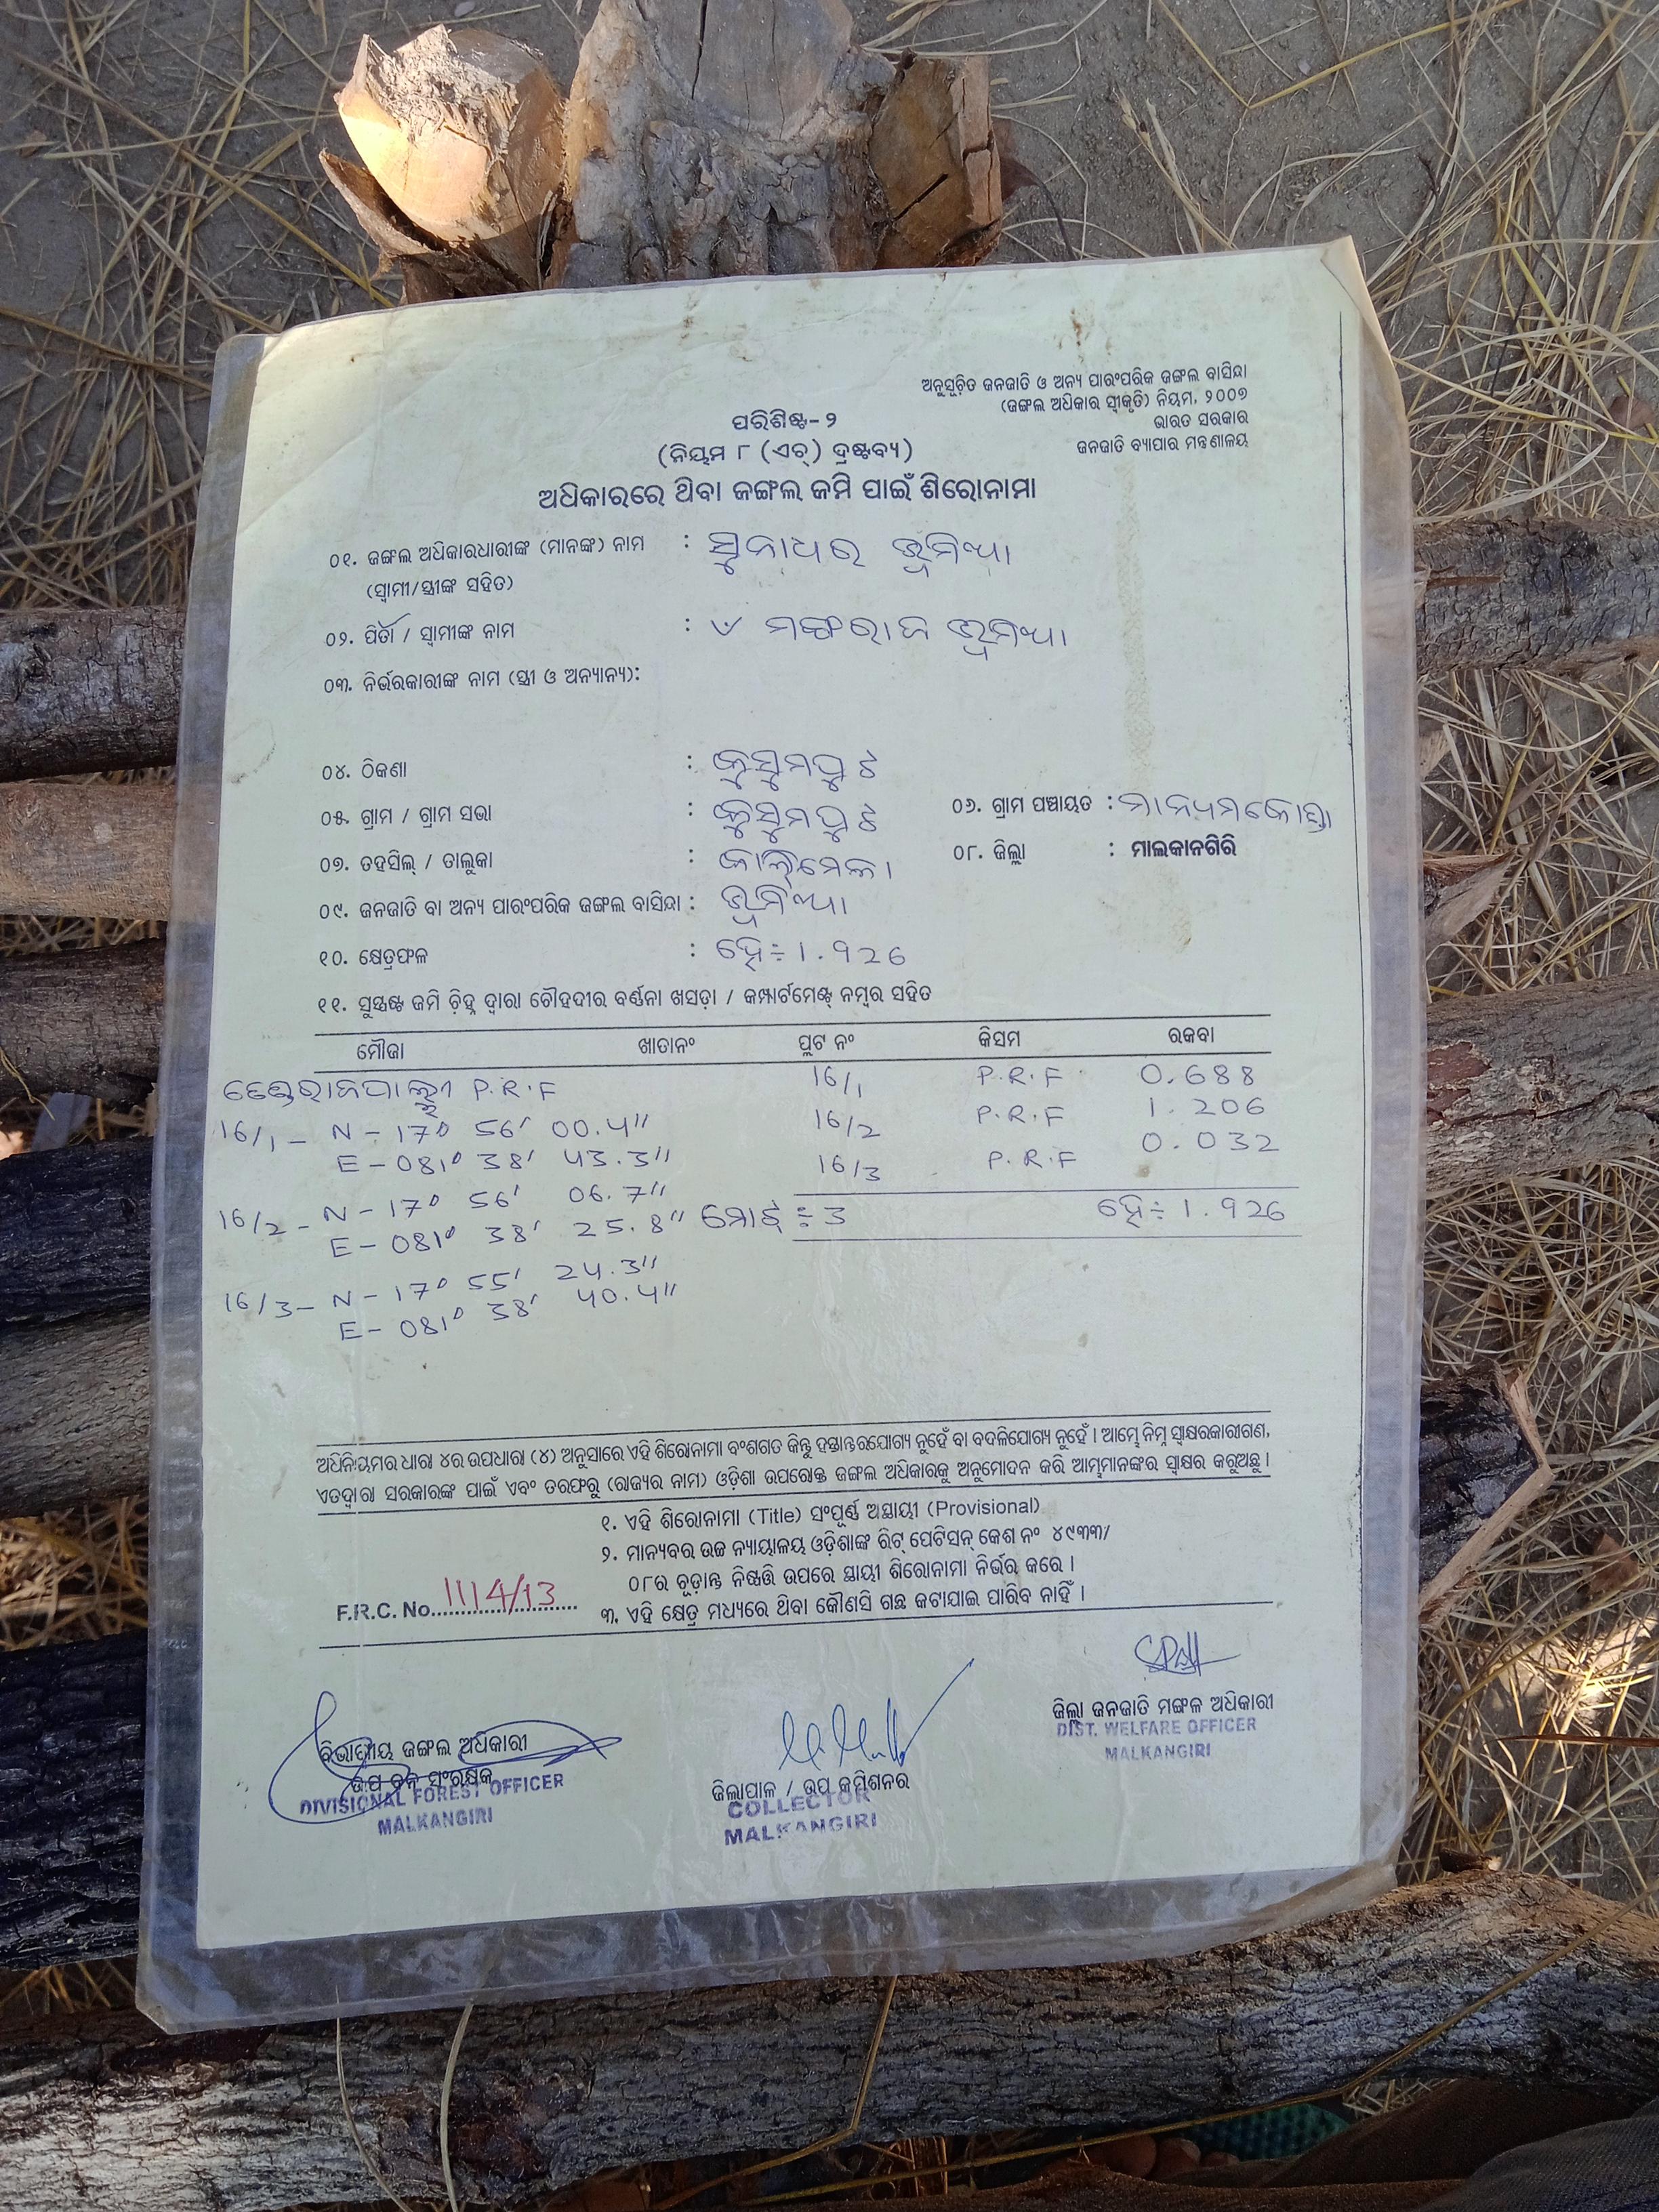 ଅନୁସୂଚିତ ଜନଜାତି ଓ ଅନ୍ୟ ପାରଂପରିକ ଜଙ୍ଗଲ ବାସିନ୍ଦା
(ଜଙ୍ଗଲ ଅଧିକାର ସ୍ୱୀକୃତି) ନିୟମ, ୨୦୦୭
ଭାରତ ସରକାର
ଜନଜାତି ବ୍ୟାପାର ମନ୍ତ୍ରଣାଳୟ
ପରିଶିଷ୍ଟ-୨
(ନିୟମ ୮ (ଏଚ୍) ଦ୍ରଷ୍ଟବ୍ୟ)
ଅଧିକାରରେ ଥିବା ଜଙ୍ଗଲ ଜମି ପାଇଁ ଶିରୋନାମା
୦୧. ଜଙ୍ଗଲ ଅଧିକାରଧାରୀଙ୍କ (ମାନଙ୍କ) ନାମ : ସୁନାଧର ଭୂମିଆ
(ସ୍ୱାମୀ/ସ୍ତ୍ରୀଙ୍କ ସହିତ)
୦୨. ପିତା / ସ୍ୱାମୀଙ୍କ ନାମ : ଭୂମିଆ
୦୩. ନିର୍ଭରକାରୀଙ୍କ ନାମ (ସ୍ତ୍ରୀ ଓ ଅନ୍ୟାନ୍ୟ):
୦୪. ଠିକଣା : କୁସୁମପୁଟ
୦୫. ଗ୍ରାମ / ଗ୍ରାମ ସଭା : କୁସୁମପୁଟ ୦୬. ଗ୍ରାମ ପଞ୍ଚାୟତ : ମାନ୍ୟମକୋଣ୍ଡା
୦୭. ତହସିଲ୍ / ତାଲୁକା : କାଲିମେଳା ୦୮. ଜିଲ୍ଲା : ମାଲକାନଗିରି
୦୯. ଜନଜାତି ବା ଅନ୍ୟ ପାରଂପରିକ ଜଙ୍ଗଲ ବାସିନ୍ଦା : ଭୂମିଆ
୧୦. କ୍ଷେତ୍ରଫଳ : ହେ÷1.926
୧୧. ସୁସ୍ପଷ୍ଟ ଜମି ଚିହ୍ନ ଦ୍ୱାରା ଚୌହଦୀର ବର୍ଣ୍ଣନା ଖସଡ଼ା / କମ୍ପାର୍ଟମେଣ୍ଟ୍ ନମ୍ବର ସହିତ
ମୌଜା ଖାତାନଂ ପ୍ଲଟ ନଂ କିସମ ରକବା
P.R.F 16/1 P.R.F 0.688
16/1 - N - 17° 56' 00.4" 16/2 P.R.F 1.206
E - 081° 38' 43.3" 16/3 P.R.F 0.032
16/2 - N - 17° 56' 06.7"
E - 081° 38' 25.8" ମୋଟ ÷ 3 ହେ÷ 1.926
16/3 - N - 17° 55' 24.3"
E - 081° 38' 40.4"
ଅଧିନିୟମର ଧାରା ୪ର ଉପଧାରା (୪) ଅନୁସାରେ ଏହି ଶିରୋନାମା ବଂଶଗତ କିନ୍ତୁ ହସ୍ତାନ୍ତରଯୋଗ୍ୟ ନୁହେଁ ବା ବଦଳିଯୋଗ୍ୟ ନୁହେଁ । ଆମ୍ଭେ ନିମ୍ନ ସ୍ୱାକ୍ଷରକାରୀଗଣ,
ଏତଦ୍ୱାରା ସରକାରଙ୍କ ପାଇଁ ଏବଂ ତରଫରୁ (ରାଜ୍ୟର ନାମ) ଓଡ଼ିଶା ଉପରୋକ୍ତ ଜଙ୍ଗଲ ଅଧିକାରକୁ ଅନୁମୋଦନ କରି ଆମ୍ଭମାନଙ୍କର ସ୍ୱାକ୍ଷର କରୁଅଛୁ ।
୧. ଏହି ଶିରୋନାମା (Title) ସଂପୂର୍ଣ୍ଣ ଅସ୍ଥାୟୀ (Provisional)
୨. ମାନ୍ୟବର ଉଚ୍ଚ ନ୍ୟାୟାଳୟ ଓଡ଼ିଶାଙ୍କ ରିଟ୍ ପେଟିସନ୍ କେଶ ନଂ ୪୯୩୩/
୦୮ର ଚୂଡ଼ାନ୍ତ ନିଷ୍ପତ୍ତି ଉପରେ ସ୍ଥାୟୀ ଶିରୋନାମା ନିର୍ଭର କରେ ।
F.R.C. No. 1114/13 ୩. ଏହି କ୍ଷେତ୍ର ମଧ୍ୟରେ ଥିବା କୌଣସି ଗଛ କଟାଯାଇ ପାରିବ ନାହିଁ ।
ବିଭାଗୀୟ ଜଙ୍ଗଲ ଅଧିକାରୀ
ଉପ ବନ ସଂରକ୍ଷକ
DIVISIONAL FOREST OFFICER
MALKANGIRI
ଜିଲ୍ଲାପାଳ / ଉପ କମିଶନର
COLLECTOR
MALKANGIRI
ଜିଲ୍ଲା ଜନଜାତି ମଙ୍ଗଳ ଅଧିକାରୀ
DIST. WELFARE OFFICER
MALKANGIRI